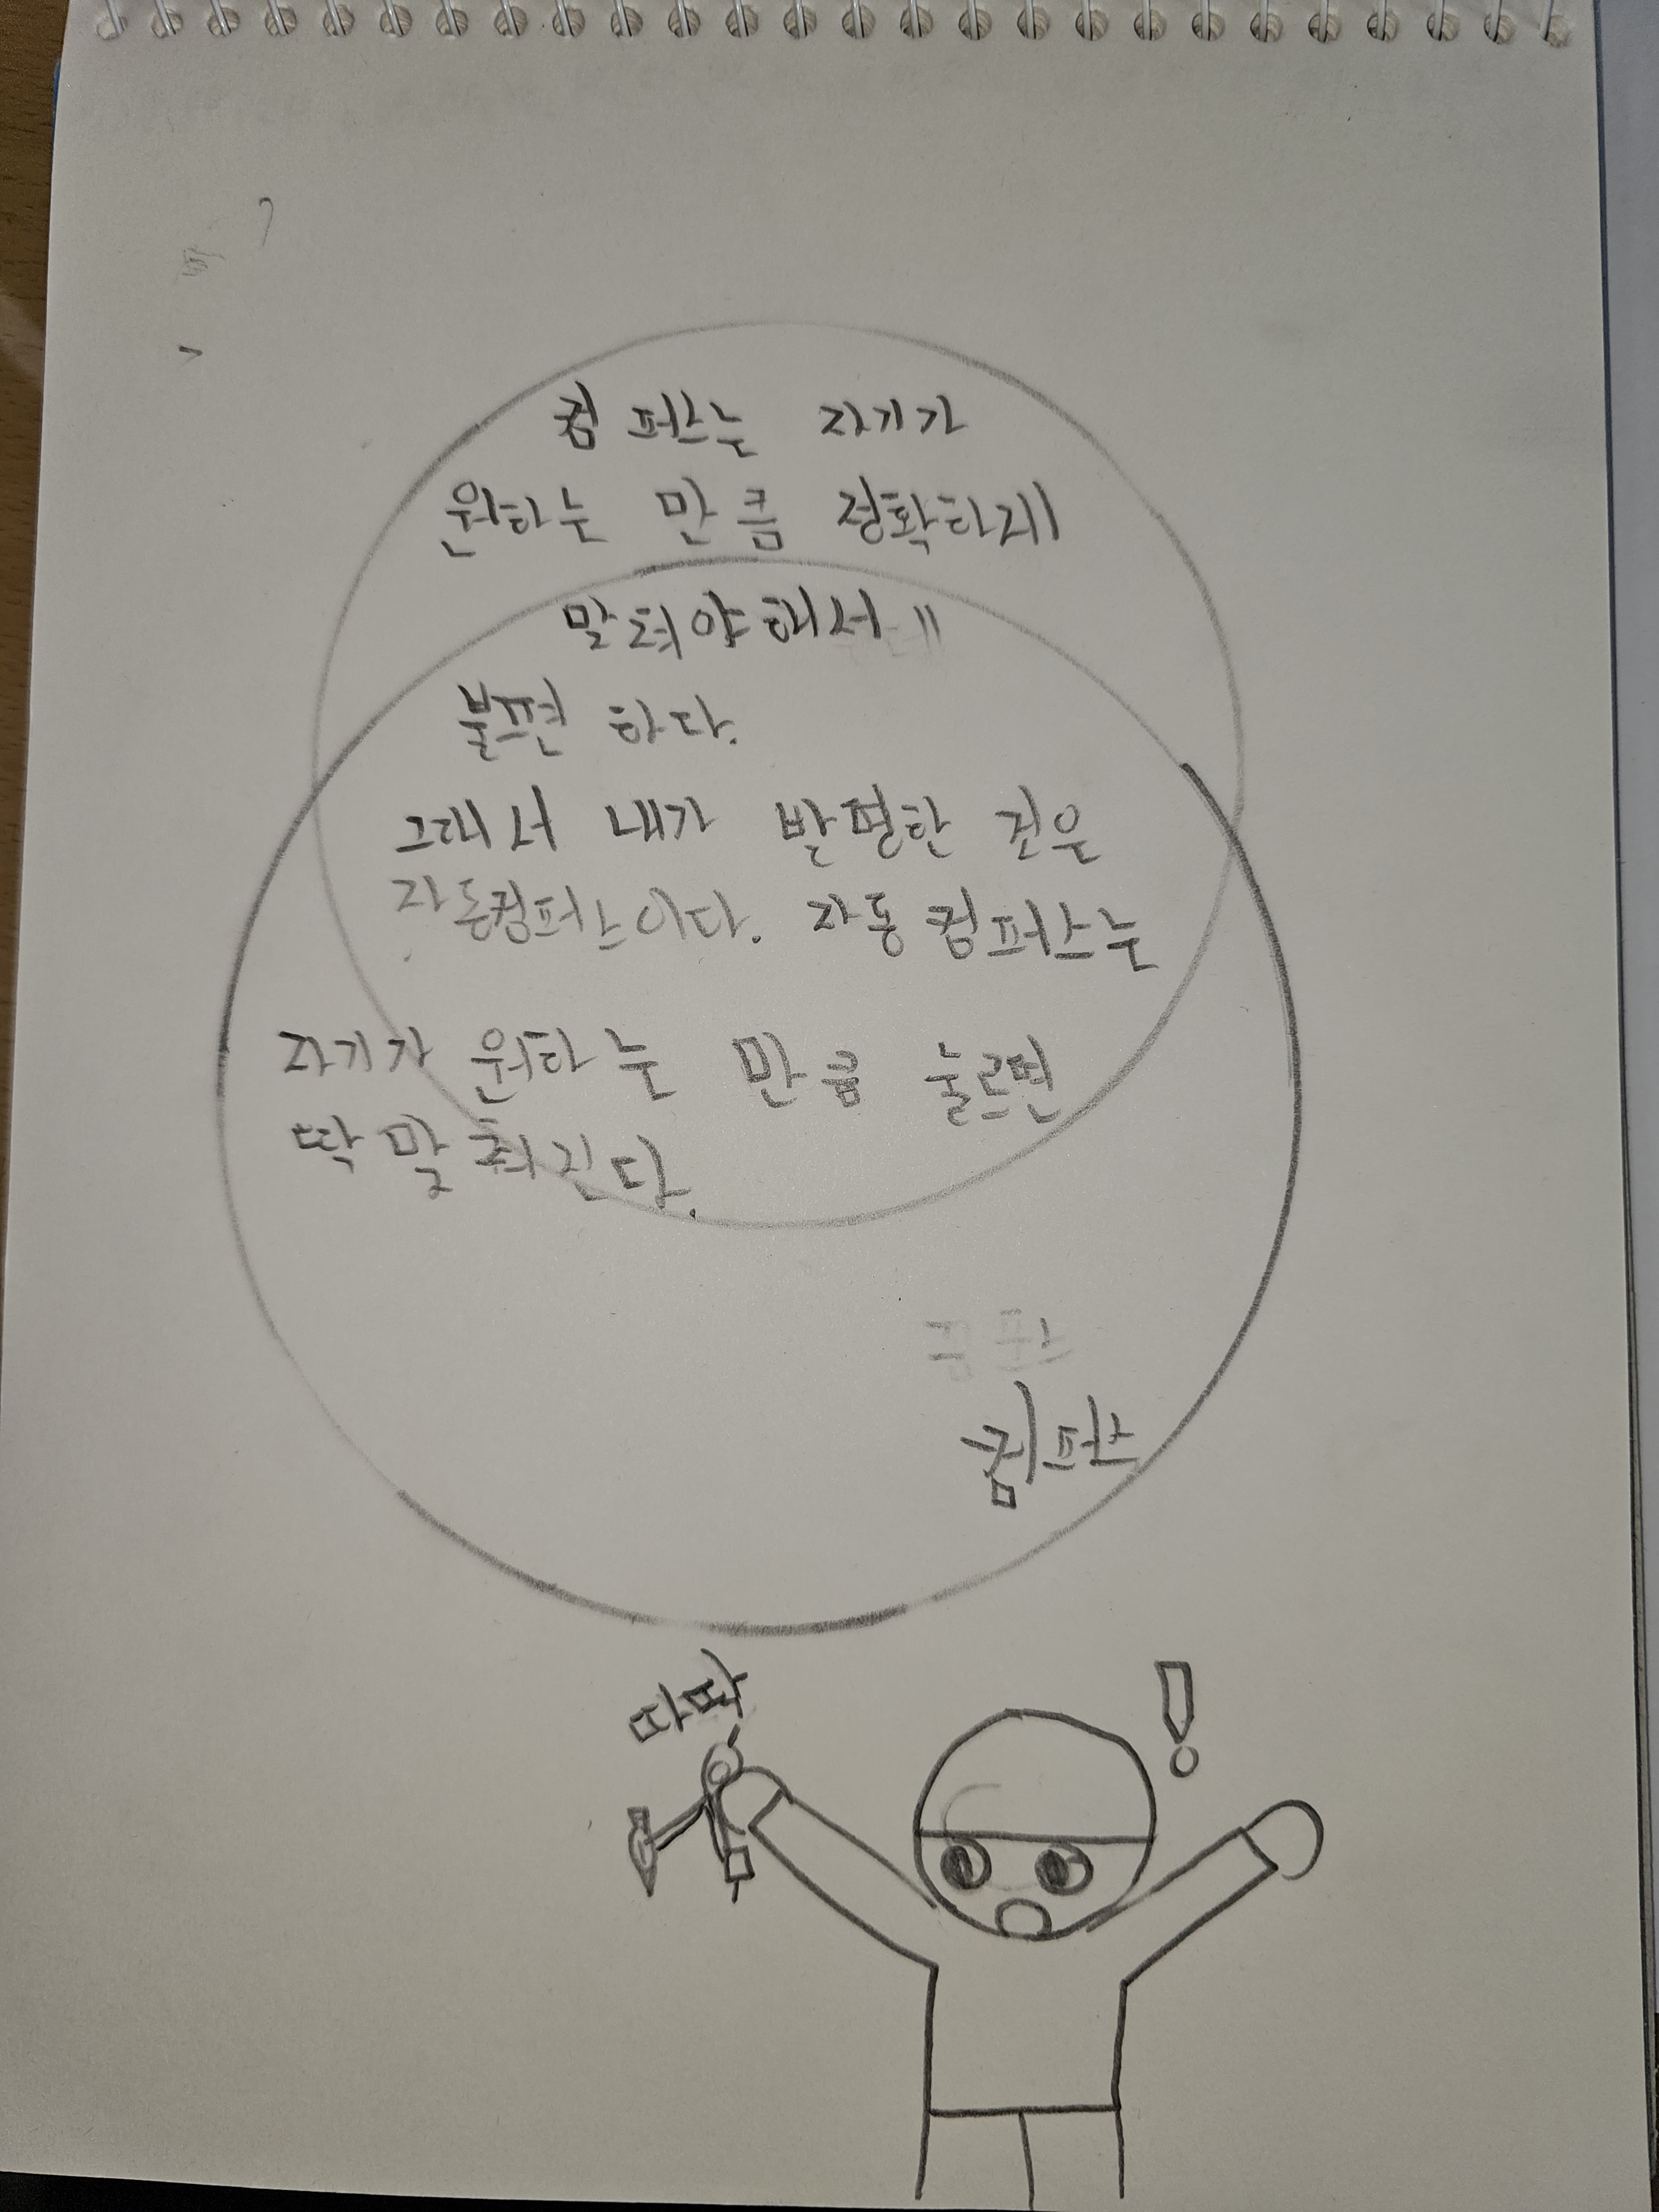 컴퍼스는 자기가
원하는 만큼 정확하게
말춰야해서
불편 하다.
그래서 내가 발명한 것은
자동컴퍼스이다. 자동 컴퍼스는
자기가 원하는 만큼 눌르면
딱 맞춰진다.
컴퍼스
따딱
!